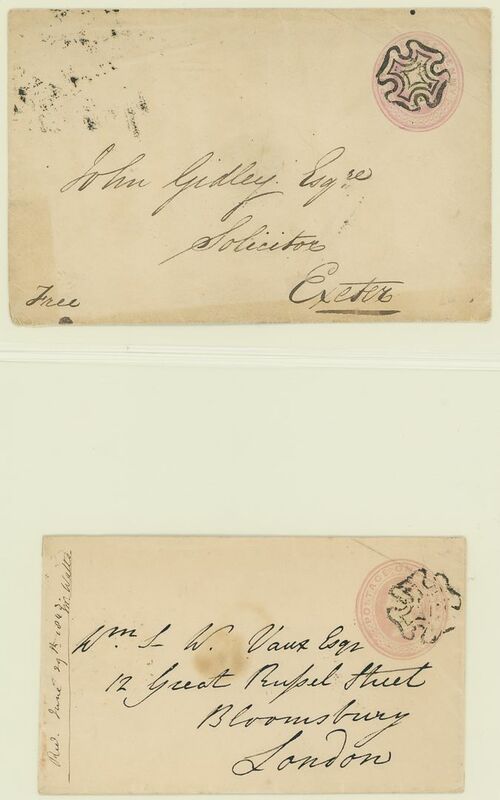 John Gidley Esqre
Solicitor
Exeter
Free
POSTAGE ON
Wm S W. Vaux Esqr
12 Great Russel Street
Bloomsbury
London
Recd. June 29th. 1843
Mr Watts